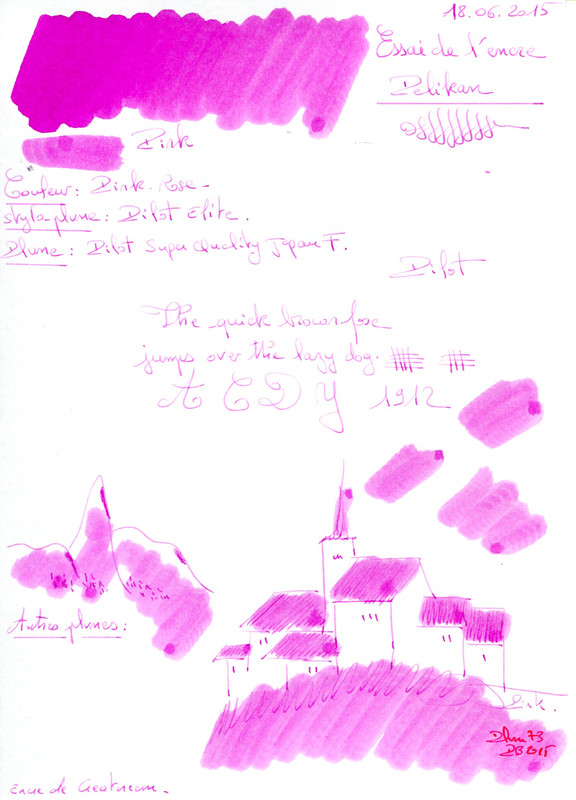 18.06.2015
Essai de l'encre
Pelikan
Pink
Couleur: Pink. Rose.
stylo-plume: Pilot Elite.
Plume: Pilot Super Quality Japan F.
Pilot
The quick brown fox
jumps over the lazy dog.
A C D Y 1912
Autres plumes:
Pink.
Plum73
DB2015
Encre de